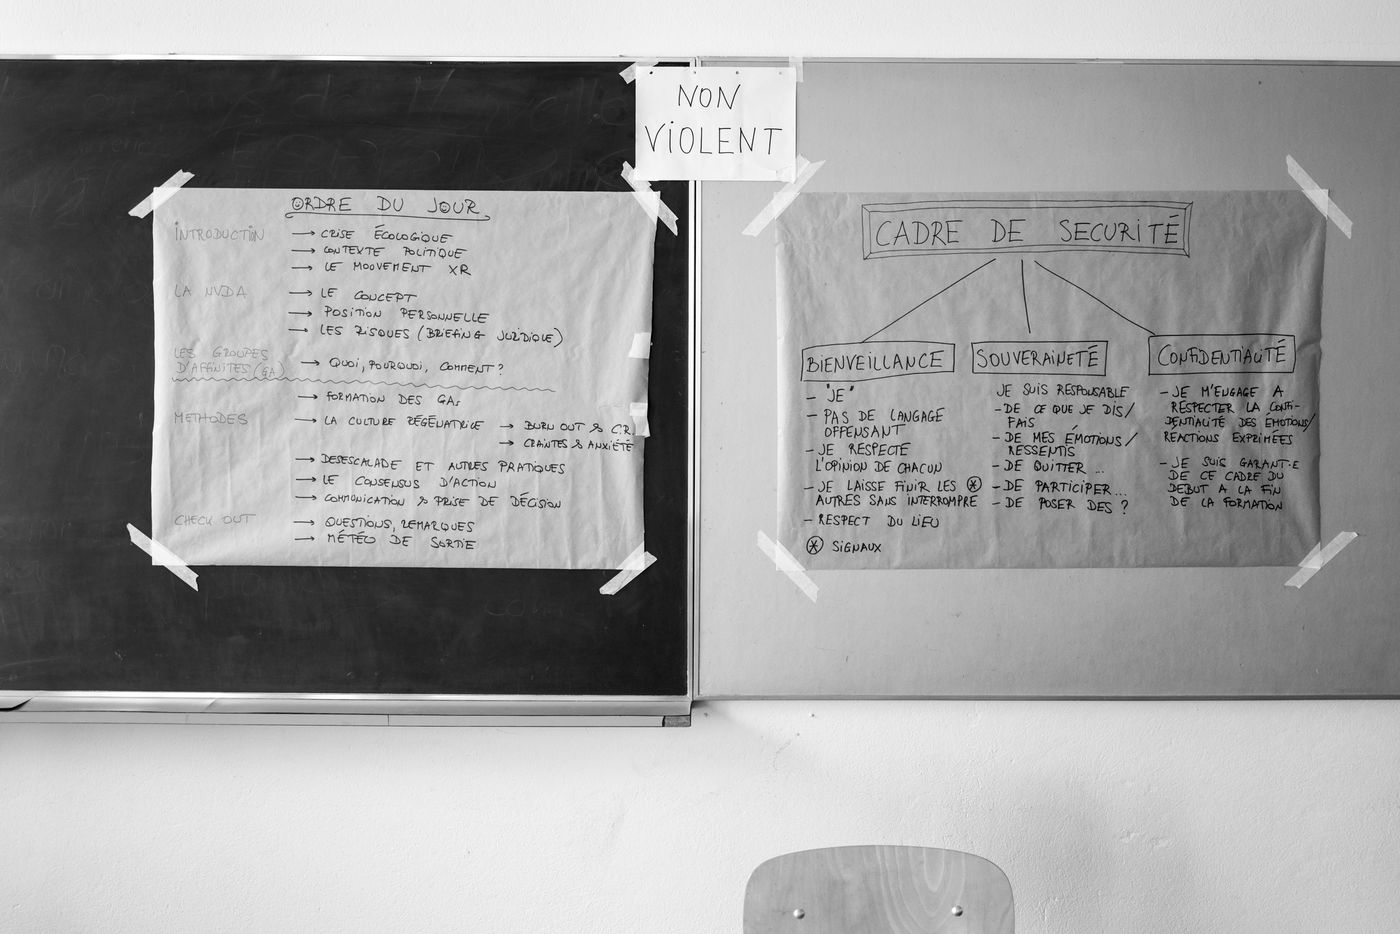 NON
VIOLENT
ORDRE DU JOUR
INTRODUCTIN → CRISE ÉCOLOGIQUE
→ CONTEXTE POLITIQUE
→ LE MOOVEMENT XR
LA NVDA → LE CONCEPT
→ POSITION PERSONNELLE
→ LES RISQUES (BRIEFING JURIDIQUE)
LES GROUPES
D'AFFINITES (GA) → QUOI, POURQUOI, COMMENT?
→ FORMATION DES GAs
METHODES → LA CULTURE RÉGÉNATRICE → BURN OUT & C.R.
→ CRAINTES & ANXIÉTÉ
→ DESESCALADE ET AUTRES PRATIQUES
→ LE CONSENSUS D'ACTION
→ COMMUNICATION & PRISE DE DÉCISION
CHECK OUT → QUESTIONS, REMARQUES
→ MÉTÉO DE SORTIE
CADRE DE SECURITÉ
BIENVEILLANCE
- "JE"
- PAS DE LANGAGE
OFFENSANT
- JE RESPECTE
L'OPINION DE CHACUN
- JE LAISSE FINIR LES ⊛
AUTRES SANS INTERROMPRE
- RESPECT DU LIEU
⊛ SIGNAUX
SOUVERAINETÉ
JE SUIS RESPONSABLE
- DE CE QUE JE DIS/
FAIS
- DE MES ÉMOTIONS/
RESSENTIS
- DE QUITTER ...
- DE PARTICIPER...
- DE POSER DES ?
CONFIDENTIALITÉ
- JE M'ENGAGE A
RESPECTER LA CONFI-
DENTIALITÉ DES ÉMOTIONS/
REACTIONS EXPRIMÉES
- JE SUIS GARANT·E
DE CE CADRE DU
DEBUT A LA FIN
DE LA FORMATION